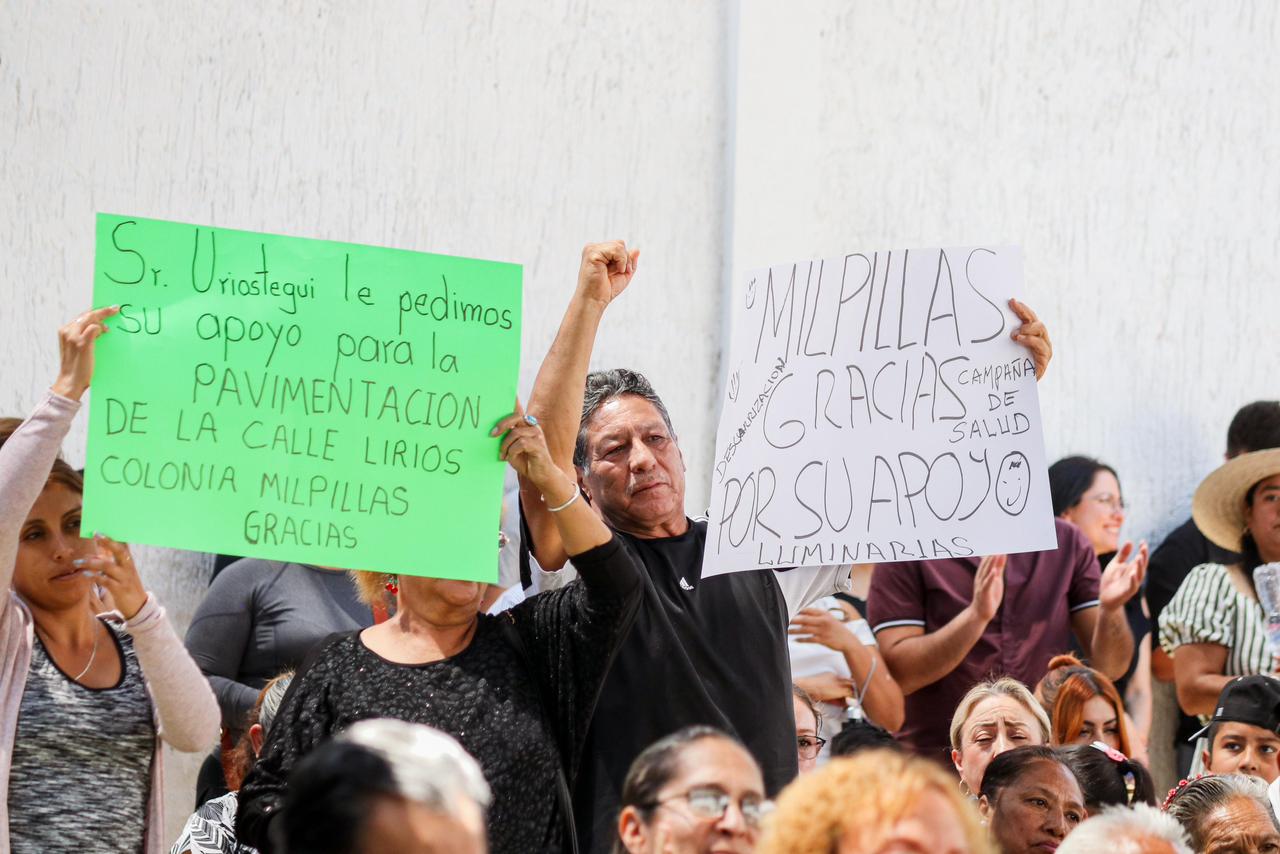 Sr. Uriostegui le pedimos
su apoyo para la
PAVIMENTACION
DE LA CALLE LIRIOS
COLONIA MILPILLAS
GRACIAS
MILPILLAS
GRACIAS
CAMPAÑA
DE
SALUD
DESCARRIZACION
POR SU APOYO
LUMINARIAS